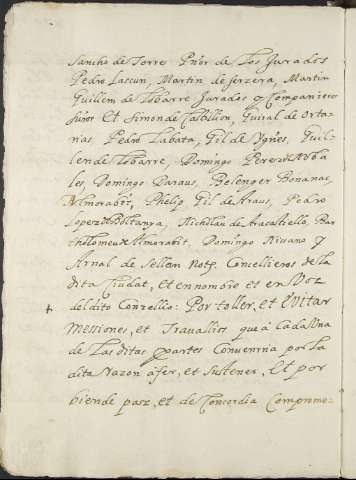 Sancho de Torres Prior de Los Jurados
Pedro Lascun, Martin de serzera, Martin
Guillem de Tobarre Jurados y Companieros
suios Et Simon de Castillon, Guiral de Orta
rias Pedro Labata, Gil de Ygñes, Guil
len de Tobarre, Domingo Perez de Arba
les, Domingo Daraus, Belenger Bonanat,
Almorabit, Phelip Gil de Araus, Pedro
Lopez de Boltanya, Nicholau de Aracastiello, Bar
tholomeu de Almorabit, Domingo Nissano y
Arnal de Sellem Not.s Concellieros de la
dita Ciudat, et en nombre et en Voz
del dito Conzellio: Por toller, et évitar
+ Messiones, et Travallios que á Cada Una
de Las ditas partes Convenria por La
dita Razon áfer, et Sustener, Et por
biende paz, et de Concordia Comprome-